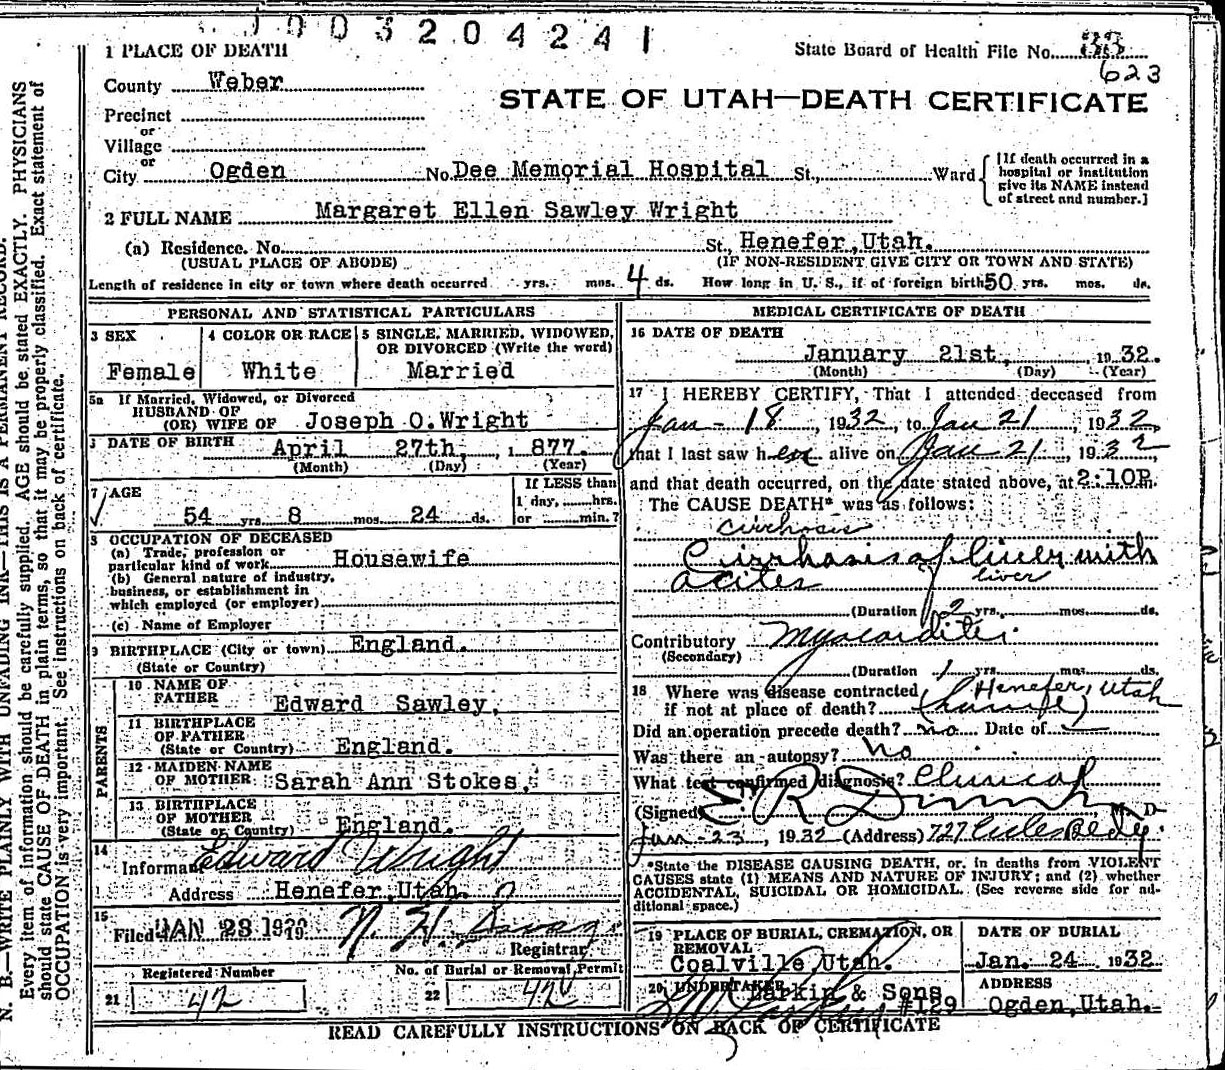 1003204241
1 PLACE OF DEATH
State Board of Health File No. 33
623
County Weber
STATE OF UTAH—DEATH CERTIFICATE
Precinct
or
Village
or
City Ogden No. Dee Memorial Hospital St., Ward
[If death occurred in a hospital or institution give its NAME instead of street and number.]
2 FULL NAME Margaret Ellen Sawley Wright
(a) Residence. No. St., Henefer, Utah.
(USUAL PLACE OF ABODE) (IF NON-RESIDENT GIVE CITY OR TOWN AND STATE)
Length of residence in city or town where death occurred yrs. mos. 4 ds. How long in U. S., if of foreign birth 50 yrs. mos. ds.
PERSONAL AND STATISTICAL PARTICULARS
3 SEX
Female
4 COLOR OR RACE
White
5 SINGLE, MARRIED, WIDOWED, OR DIVORCED (Write the word)
Married
5a If Married, Widowed, or Divorced
HUSBAND OF
(OR) WIFE OF Joseph O. Wright
DATE OF BIRTH April 27th, 1877.
(Month) (Day) (Year)
7 AGE
54 yrs. 8 mos. 24 ds.
If LESS than
1 day, hrs.
or min.?
8 OCCUPATION OF DECEASED
(a) Trade, profession or
particular kind of work Housewife
(b) General nature of industry,
business, or establishment in
which employed (or employer)
(c) Name of Employer
9 BIRTHPLACE (City or town) England.
(State or Country)
PARENTS
10 NAME OF
FATHER Edward Sawley,
11 BIRTHPLACE
OF FATHER
(State or Country) England.
12 MAIDEN NAME
OF MOTHER Sarah Ann Stokes,
13 BIRTHPLACE
OF MOTHER
(State or Country) England.
14
Informant Edward Wright
Address Henefer, Utah.
15
Filed JAN 23 19
N. H.
Registrar
Registered Number
21 42
No. of Burial or Removal Permit
22 42
MEDICAL CERTIFICATE OF DEATH
16 DATE OF DEATH
January 21st, 1932.
(Month) (Day) (Year)
17 I HEREBY CERTIFY, That I attended deceased from
Jan - 18, 1932, to Jan 21, 1932,
that I last saw her alive on Jan 21, 1932,
and that death occurred, on the date stated above, at 2:10P.
The CAUSE DEATH* was as follows:
cirrhosis
Cirrhosis of liver with
acites liver
(Duration 2 yrs. mos. ds.
Contributory Myocarditis.
(Secondary)
(Duration 1 yrs. mos. ds.
18 Where was disease contracted
if not at place of death? Henefer, Utah
(home)
Did an operation precede death? no Date of
Was there an autopsy? no
What test confirmed diagnosis? Clinical
(Signed) E R M. D.
Jan - 23, 1932 (Address) 727 Eccles Bldg.
*State the DISEASE CAUSING DEATH, or, in deaths from VIOLENT
CAUSES state (1) MEANS AND NATURE OF INJURY; and (2) whether
ACCIDENTAL, SUICIDAL OR HOMICIDAL. (See reverse side for ad-
ditional space.)
19 PLACE OF BURIAL, CREMATION, OR
REMOVAL
Coalville, Utah.
DATE OF BURIAL
Jan. 24 1932
20 UNDERTAKER
Larkin & Sons
#129
ADDRESS
Ogden, Utah.
READ CAREFULLY INSTRUCTIONS ON BACK OF CERTIFICATE
N. B.—WRITE PLAINLY WITH UNFADING INK—THIS IS A PERMANENT RECORD.
Every item of information should be carefully supplied. AGE should be stated EXACTLY. PHYSICIANS
should state CAUSE OF DEATH in plain terms, so that it may be properly classified. Exact statement of
OCCUPATION is very important. See instructions on back of certificate.